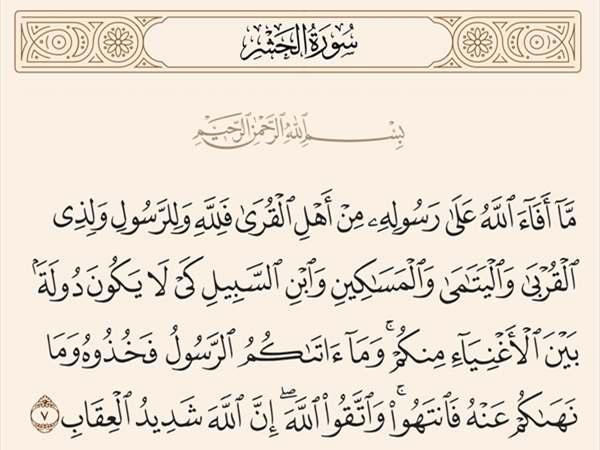 سُورَةُ الحَشْرِ
بِسْمِ ٱللَّهِ ٱلرَّحْمَٰنِ ٱلرَّحِيمِ
مَّآ أَفَآءَ ٱللَّهُ عَلَىٰ رَسُولِهِۦ مِنْ أَهْلِ ٱلْقُرَىٰ فَلِلَّهِ وَلِلرَّسُولِ وَلِذِى
ٱلْقُرْبَىٰ وَٱلْيَتَٰمَىٰ وَٱلْمَسَٰكِينِ وَٱبْنِ ٱلسَّبِيلِ كَىْ لَا يَكُونَ دُولَةًۢ
بَيْنَ ٱلْأَغْنِيَآءِ مِنكُمْ ۚ وَمَآ ءَاتَىٰكُمُ ٱلرَّسُولُ فَخُذُوهُ وَمَا
نَهَىٰكُمْ عَنْهُ فَٱنتَهُوا۟ ۚ وَٱتَّقُوا۟ ٱللَّهَ ۖ إِنَّ ٱللَّهَ شَدِيدُ ٱلْعِقَابِ ٧